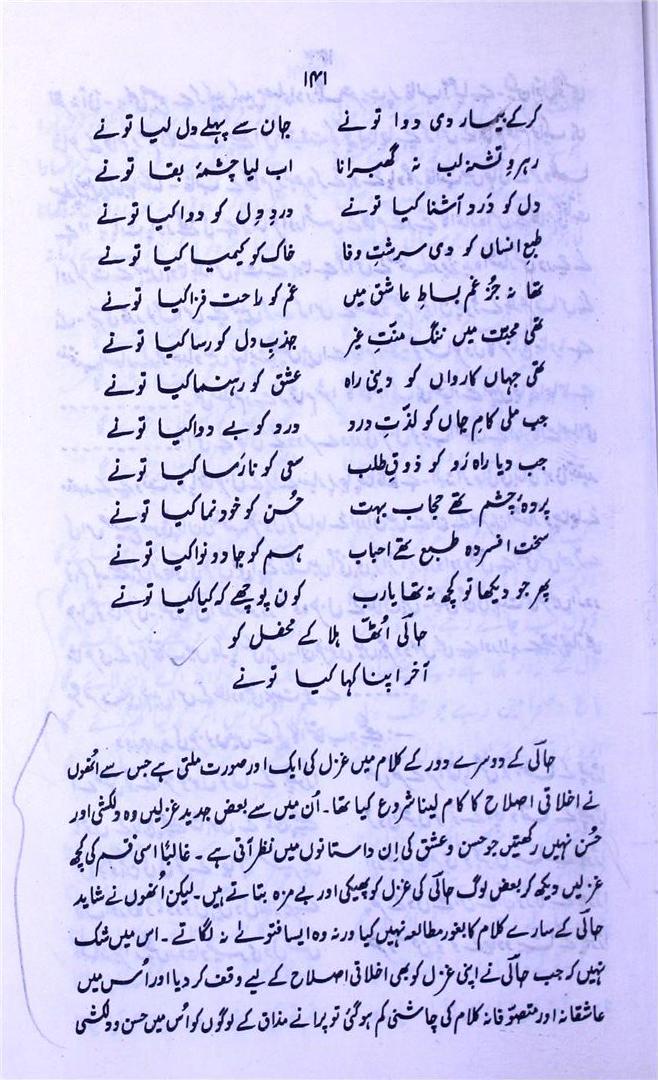 ۱۴۱
کر کے بیمار دی دوا تو نے جان سے پہلے دل لیا تو نے
رہروِ تشنہ لب نہ گھبرانا اب لیا چشمۂ بقا تو نے
دل کو درد آشنا کیا تو نے دردِ دل کو دوا کیا تو نے
طبعِ انساں کو دی سرشتِ وفا خاک کو کیمیا کیا تو نے
تھا نہ جُز غم بساطِ عاشق میں غم کو راحت فزا کیا تو نے
تھی محبت میں ننگ منّتِ غیر جذبِ دل کو رسا کیا تو نے
تھی جہاں کارواں کو دینی راہ عشق کو رہنما کیا تو نے
جب ملی کامِ جاں کو لذّتِ درد درد کو بے دوا کیا تو نے
جب دیا راہ رَو کو ذوقِ طلب سعی کو نارَسا کیا تو نے
پردۂ چشم تھے حجاب بہت حُسن کو خود نما کیا تو نے
سخت افسردہ طبع تھے احباب ہم کو جادو نوا کیا تو نے
پھر جو دیکھا تو کچھ نہ تھا یارب کون پوچھے کہ کیا کیا تو نے
حالؔی اُٹھا ہلا کے محفل کو
آخر اپنا کہا کیا تو نے
حالؔی کے دوسرے دور کے کلام میں غزل کی ایک اور صورت ملتی ہے جس سے اُنھوں
نے اخلاقی اصلاح کا کام لینا شروع کیا تھا۔ اُن میں سے بعض جدید غزلیں وہ دلکشی اور
حُسن نہیں رکھتیں جو حسن و عشق کی اِن داستانوں میں نظر آتی ہے۔ غالباً اسی قسم کی کچھ
غزلیں دیکھ کر بعض لوگ حالؔی کی غزل کو پھیکی اور بے مزہ بتاتے ہیں۔ لیکن اُنھوں نے شاید
حالؔی کے سارے کلام کا بغور مطالعہ نہیں کیا ورنہ وہ ایسا فتوےٰ نہ لگاتے۔ اس میں شک
نہیں کہ جب حالؔی نے اپنی غزل کو بھی اخلاقی اصلاح کے لیے وقف کر دیا اور اُس میں
عاشقانہ اور متصوّفانہ کلام کی چاشنی کم ہو گئی تو پرانے مذاق کے لوگوں کو اُس میں حسن و دلکشی